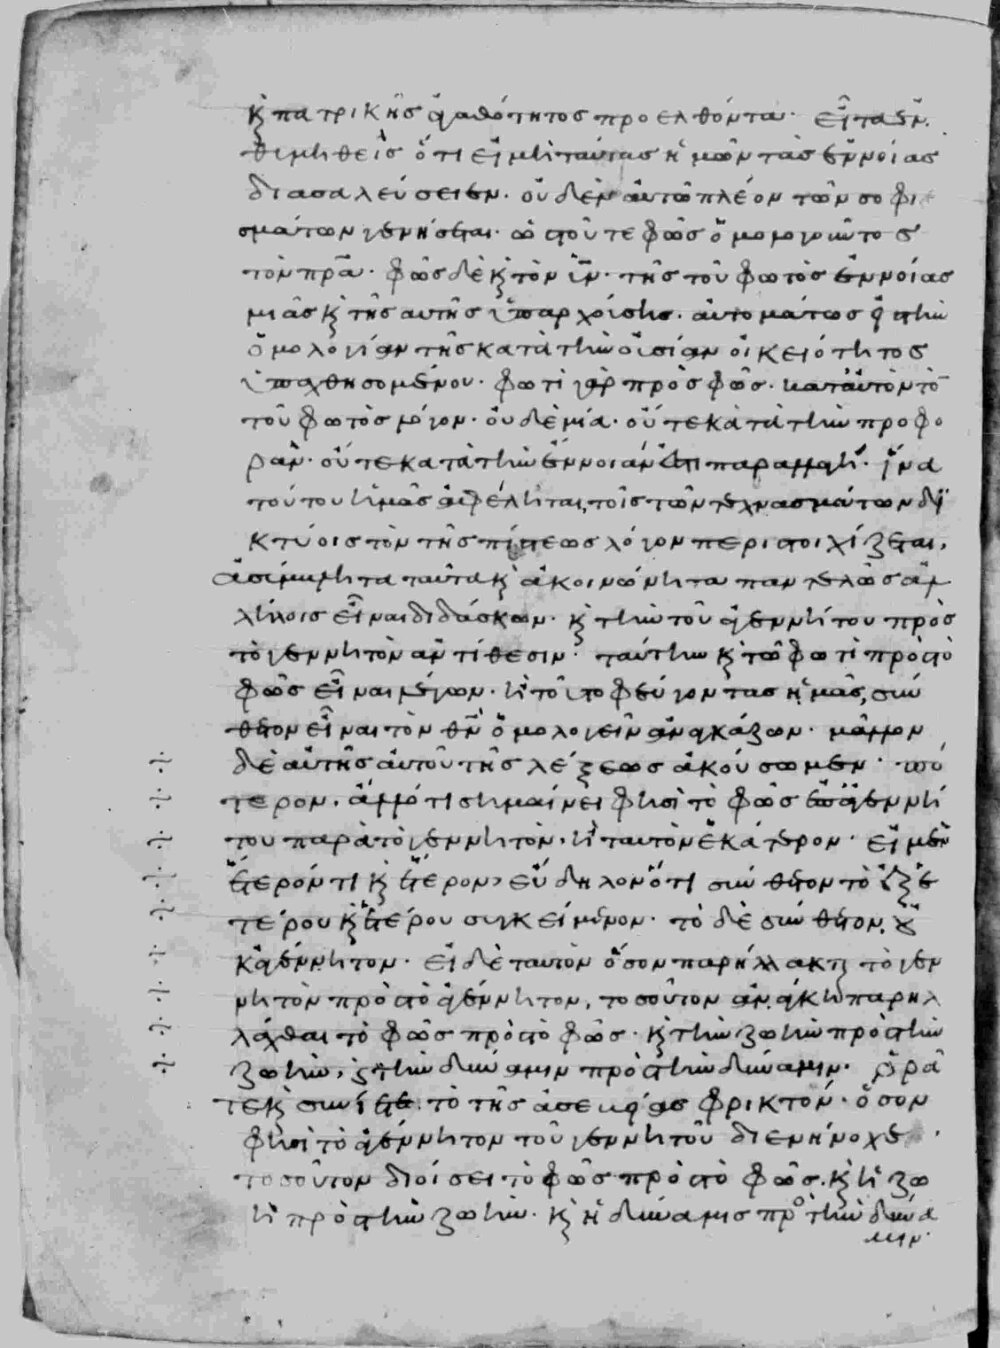 κ(αὶ) πατρικῆς ἀγαθότητος προελθόντα· εἶτα ἐν
θυμηθεὶς ὅτι εἰ μὴ ταύτας ἡμῶν τὰς ἐννοίας
διασαλεύσειεν· οὐδὲν αὐτῶ πλέον τῶν σοφι
σμάτων γενήσεται· ὡς τοῦ τε φῶς ὁμολογοῦντος
τὸν πρα· φῶς δὲ κ(αὶ) τὸν υν· τῆς τοῦ φωτὸς ἐννοίας
μιᾶς κ(αὶ) τῆς αὐτῆς ὑπαρχούσης· αὐτομάτως ἐπὶ τὴν
ὁμολογίαν τῆς κατὰ τὴν οὐσίαν οἰκειότητος
ὑπαχθησομένου· φωτὶ γὰρ πρὸς φῶς· κατ' αὐτὸν τὸν
τοῦ φωτὸς λόγον· οὐδεμία· οὔτε κατὰ τὴν προφο
ράν· οὔτε κατὰ τὴν ἔννοιάν ἐστι παραλλαγή· ἵνα
τούτου ἡμᾶς ἀφέληται, τοῖς τῶν τεχνασμάτων δι
κτύοις τὸν τῆς πίστεως λόγον περιστοιχίζεται,
ἀσύμβατα ταῦτα κ(αὶ) ἀκοινώνητα παντελῶς ἀλ
λήλοις εἶναι διδάσκων· κ(αὶ) τὴν τοῦ ἀγεννήτου πρὸς
τὸ γεννητὸν ἀντίθεσιν· ταύτην κ(αὶ) τῶ φωτὶ πρὸς τὸ
φῶς εἶναι λέγων· ἢ τοῦτο φεύγοντας ἡμᾶς, σύν
θετον εἶναι τὸν θν ὁμολογεῖν ἀναγκάζων· μᾶλλον
δὲ αὐτῆς αὐτοῦ τῆς λέξεως ἀκούσωμεν· πό
τερον· ἄλλό τι σημαίνει φησὶ τὸ φῶς ἐπὶ ἀγεννή
του παρὰ τὸ γεννητόν, ἢ ταυτὸν ἑκάτερον· εἰ μὲν
ἕτερόν τι κ(αὶ) ἕτερον, εὔδηλον ὅτι σύνθετον τὸ ἐξ ἑ
τέρου κ(αὶ) ἑτέρου συγκείμενον· τὸ δὲ σύνθετον, οὐ
κ ἀγέννητον· εἰ δὲ ταυτὸν ὅσον παρήλλακται τὸ γεν
νητὸν πρὸς τὸ ἀγέννητον, τοσοῦτον ἀνάγκη παρηλ
λάχθαι τὸ φῶς πρὸς τὸ φῶς· κ(αὶ) τὴν ζωὴν πρὸς τὴν
ζωήν, κ(αὶ) τὴν δύναμιν πρὸς τὴν δύναμιν· ὁρᾶ
τε κ(αὶ) συνίετε τὸ τῆς ἀσεβείας φρικτόν· ὅσον
φησὶ τὸ ἀγέννητον τοῦ γεννητοῦ διενήνοχε·
τοσοῦτον διοίσει τὸ φῶς πρὸς τὸ φῶς· κ(αὶ) ἡ ζω
ὴ πρὸς τὴν ζωήν· κ(αὶ) ἡ δύναμις πρὸς τὴν δύνα
μιν·